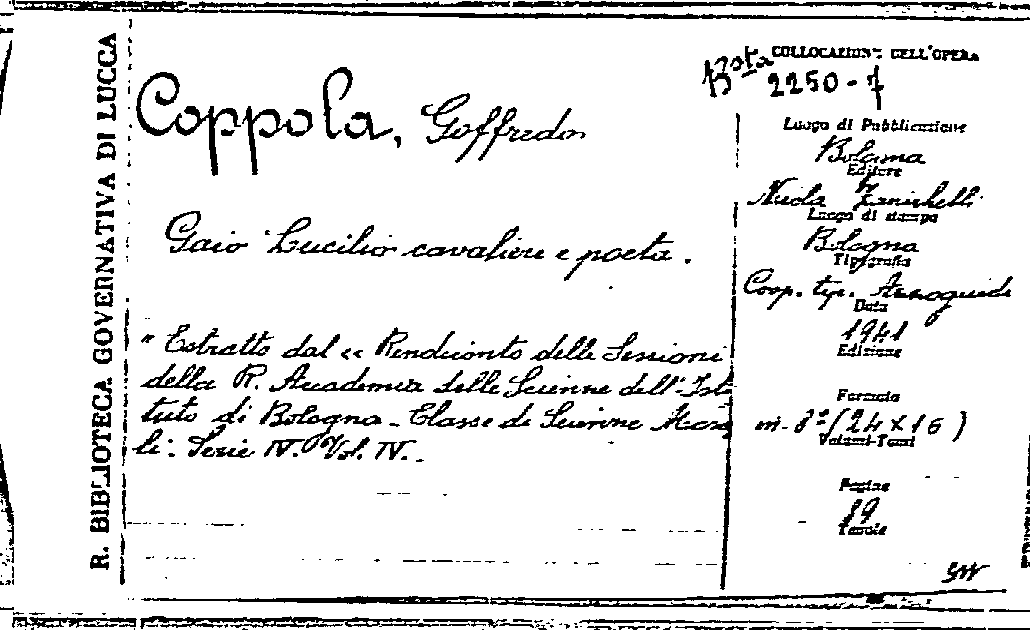 R. BIBLIOTECA GOVERNATIVA DI LUCCA
Coppola, Goffredo
Gaio Lucilio cavaliere e poeta.
" Estratto dal << Rendiconto delle Sessioni
della R. Accademia delle Scienze dell'Isti
tuto di Bologna - Classe di Scienze Mora
li. Serie IV. Vol. IV.
COLLOCAZIONE DELL'OPERA
Bta
2250-7
Luogo di Pubblicazione
Bologna
Editore
Nicola Zanichelli
Luogo di stampa
Bologna
Tipografia
Coop. tip. Azzoguidi
Data
1941
Edizione
Formato
in-8º (24x16)
Volumi-Tomi
Pagine
19
Tavole